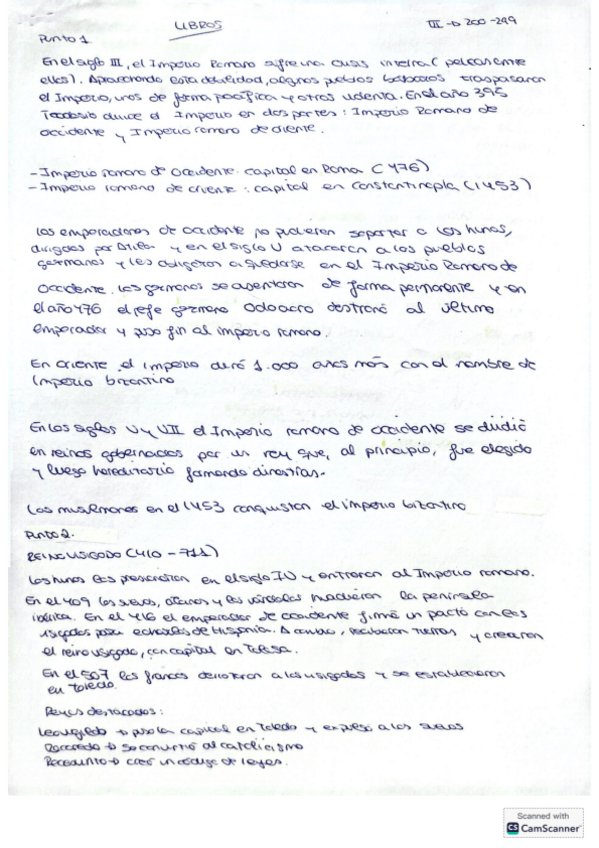 LIBROS
III -> 200-299
Punto 1
En el siglo III, el Imperio Romano sufre una crisis interna (pelean entre
ellos). Aprovechando esta debilidad, algunos pueblos bárbaros traspasaron
el Imperio, unos de forma pacífica y otros violenta. En el año 395
Teodosio divide el Imperio en dos partes: Imperio Romano de
occidente y Imperio romano de oriente.
-Imperio romano de Occidente: capital en Roma (476)
-Imperio romano de oriente: capital en Constantinopla (1453)
Los emperadores de occidente no pudieron soportar a los hunos,
dirigidos por Atila y en el siglo V atacaron a los pueblos
germanos y les obligaron a quedarse en el Imperio Romano de
Occidente. Los germanos se asentaron de forma permanente y en
el año 476 el jefe germano Odoacro destronó al último
emperador y puso fin al imperio romano.
En oriente, el imperio duró 1.000 años más con el nombre de
Imperio bizantino
En los siglos V y VII el Imperio romano de occidente se dividió
en reinos gobernados por un rey que, al principio, fue elegido
y luego hereditario formando dinastías.
Los musulmanes en el 1453 conquistan el imperio bizantino
Punto 2.
REINO VISIGODO (410 - 711)
Los hunos los presionaron en el siglo IV y entraron al Imperio romano.
En el 409 los suevos, alanos y los vándalos invadieron la península
ibérica. En el 416 el emperador de occidente firmó un pacto con los
visigodos para echarlos de Hispania. A cambio, recibieron tierras y crearon
el reino visigodo, con capital en Tolosa.
En el 507 los francos derrotaron a los visigodos y se establecieron
en Toledo.
Reyes destacados:
Leovigildo -> puso la capital en Toledo y expulsó a los suevos
Recaredo -> se convirtió al catolicismo
Recesvinto -> creó un código de leyes.
Scanned with
CS CamScanner